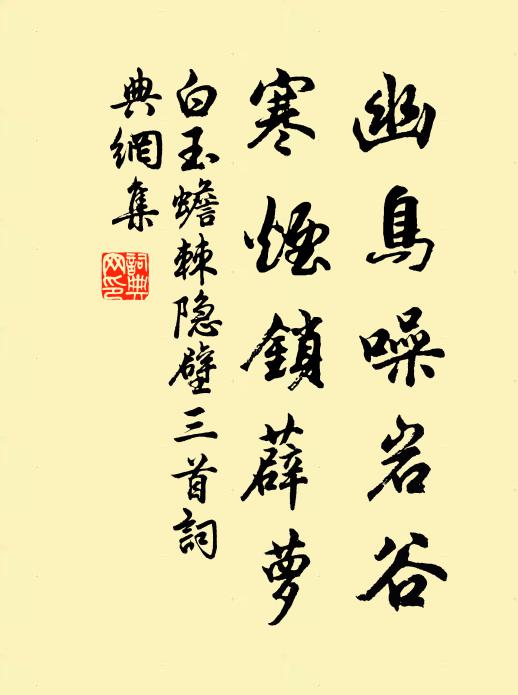 幽鳥噪岩谷
寒煙鎖薜萝
白玉蟾棘隐壁三首詞
典網集
詞典
网印